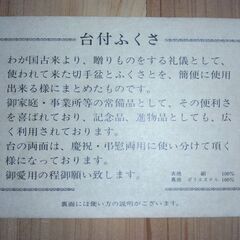 台付ふくさ
わが国古来より、贈りものをする礼儀として、
使われて来た切手盆とふくさとを、簡便に使用
出来る様にまとめたものです。
御家庭・事業所等の常備品として、その便利さ
を喜ばれており、記念品、進物品としても、広
く利用されております。
台の両面は、慶祝・弔慰両用に使い分けて頂く
様になっております。
御愛用の程御願い致します。
表地 絹 100%
裏地 ポリエステル 100%
裏面には使い方の説明がございます。